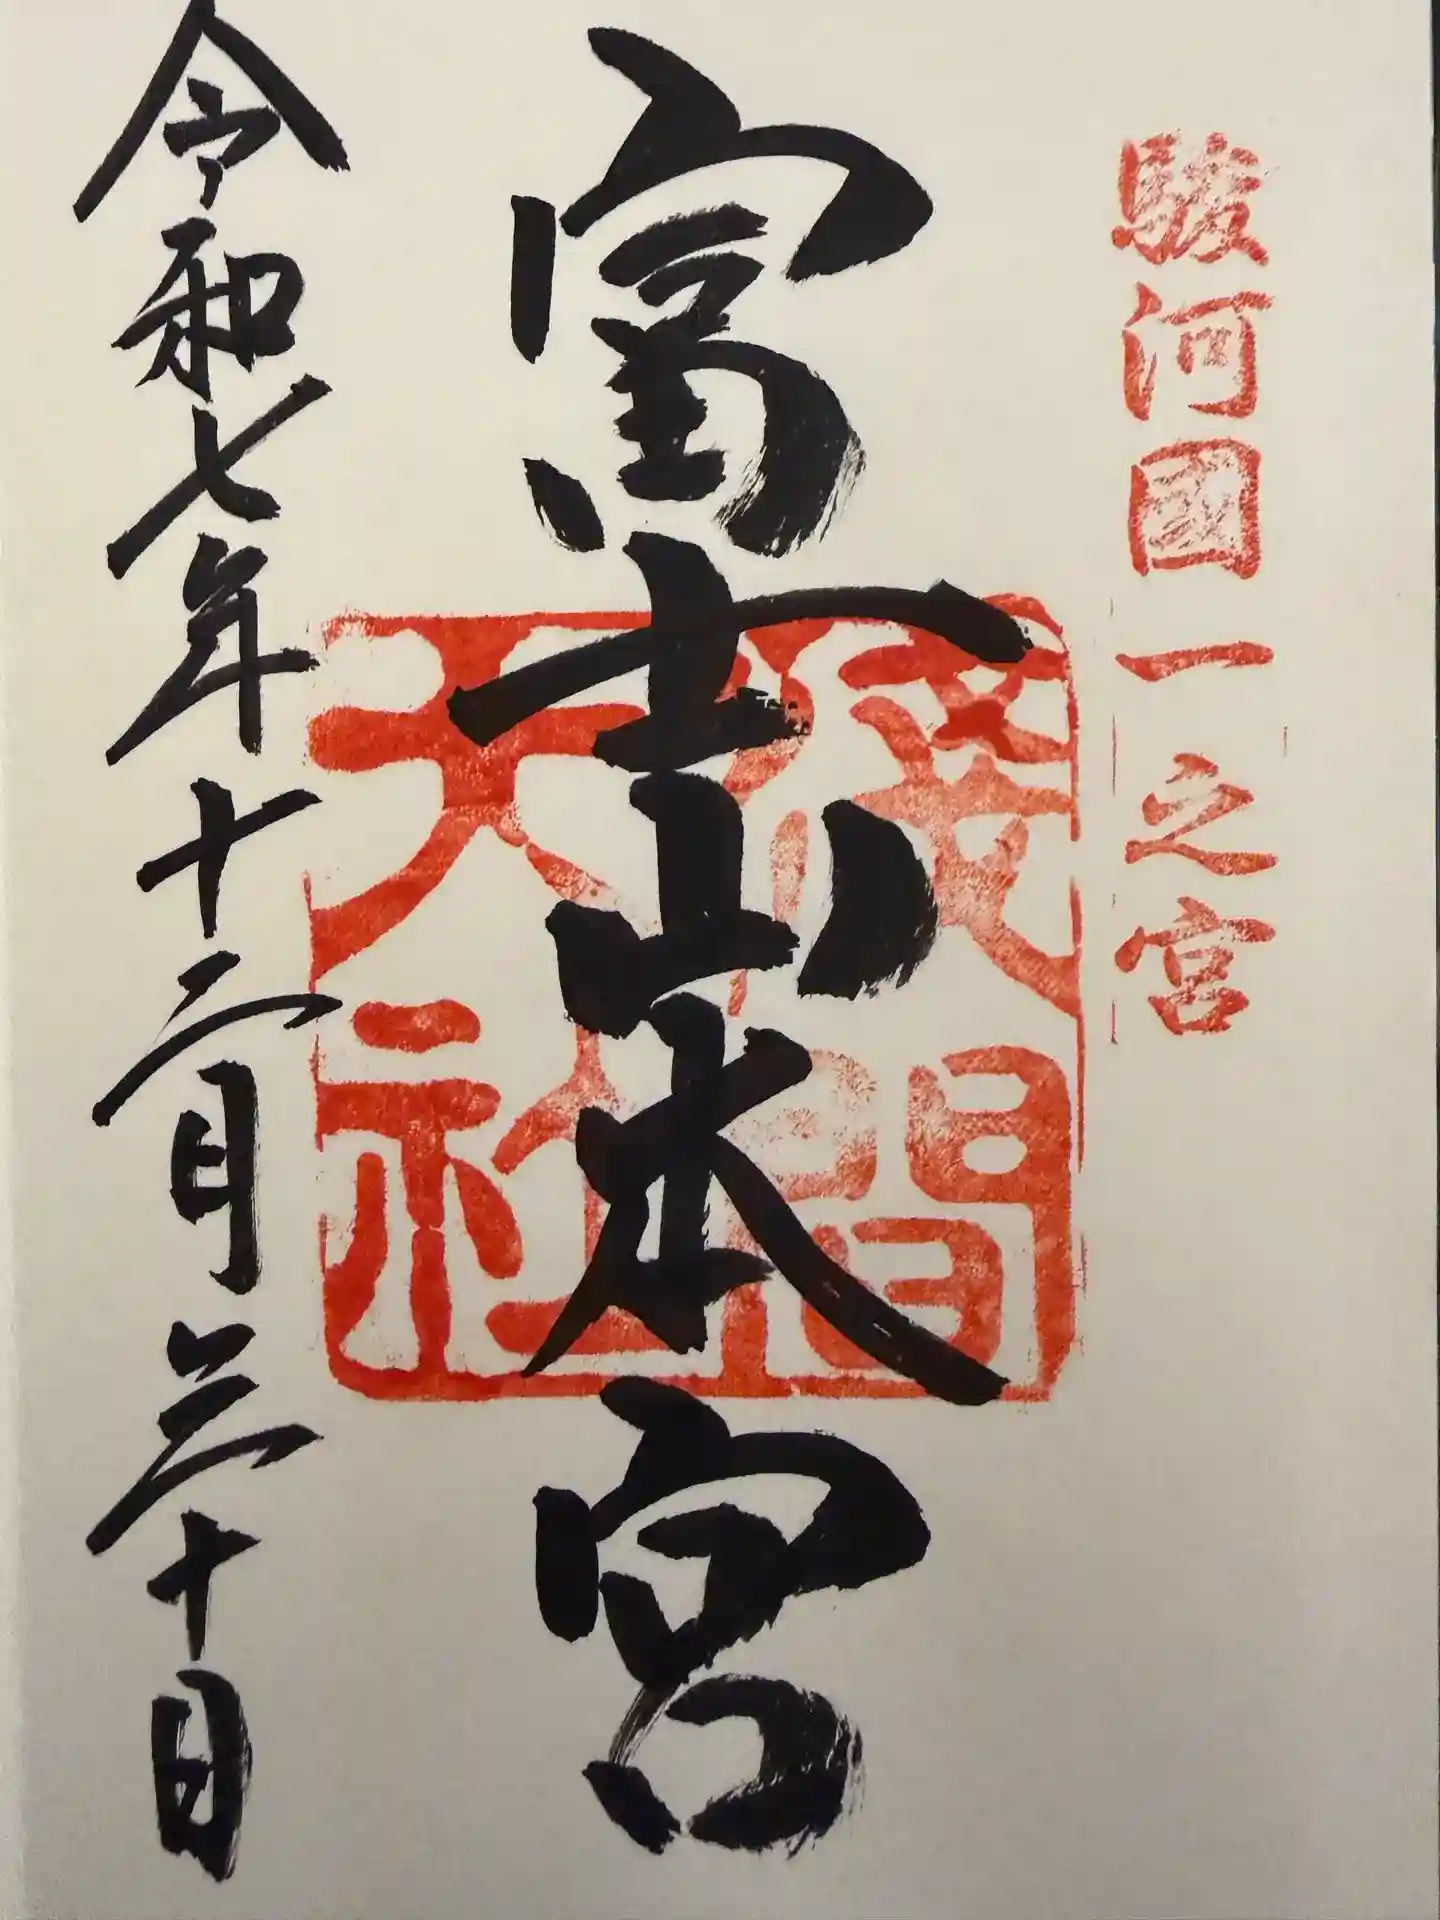 駿河國一之宮
富士山本宮
淺間大社
令和七年十二月三十日